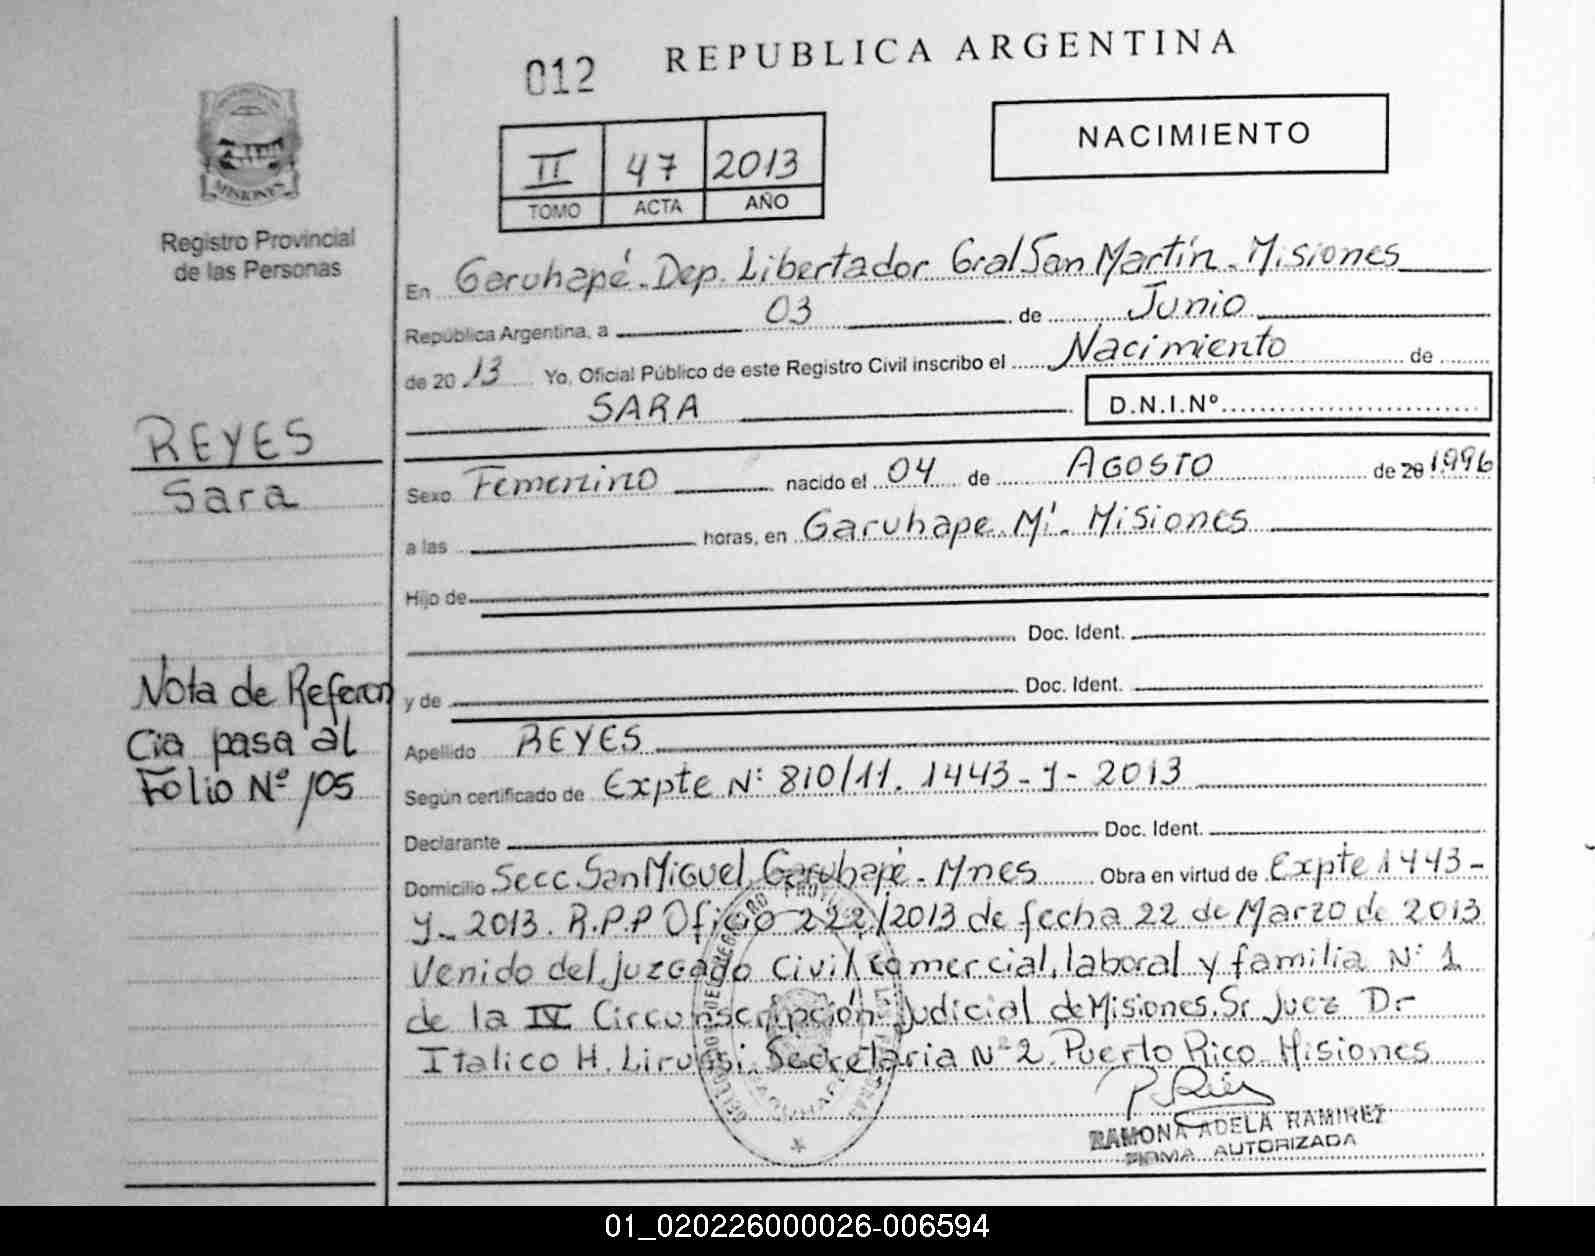 012
REPUBLICA ARGENTINA
II 47 2013
TOMO ACTA AÑO
NACIMIENTO
MISIONES
Registro Provincial
de las Personas
En Garuhapé. Dep. Libertador Gral San Martín. Misiones
República Argentina, a 03 de Junio
de 20 13 Yo, Oficial Público de este Registro Civil inscribo el Nacimiento de
SARA D.N.I.Nº
REYES
Sara
Sexo Femenino nacido el 04 de AGOSTO de 20 1996
a las horas, en Garuhape Mí. Misiones
Hijo de
Doc. Ident.
y de Doc. Ident.
Nota de Referen
cia pasa al
Folio Nº 105
Apellido REYES
Según certificado de Expte Nº 810/11. 1443-y-2013
Declarante Doc. Ident.
Domicilio Secc. San Miguel. Garuhapé. Mnes Obra en virtud de Expte 1443-
y-2013. R.P.P Oficio 222/2013 de fecha 22 de Marzo de 2013
venido del juzgado Civil comercial, laboral y familia Nº 1
de la IV Circunscripción judicial de Misiones. Sr Juez Dr
Italico H. Lirussi. Secretaria Nº 2. Puerto Rico. Misiones
RAMONA ADELA RAMIREZ
FIRMA AUTORIZADA
01_020226000026-006594